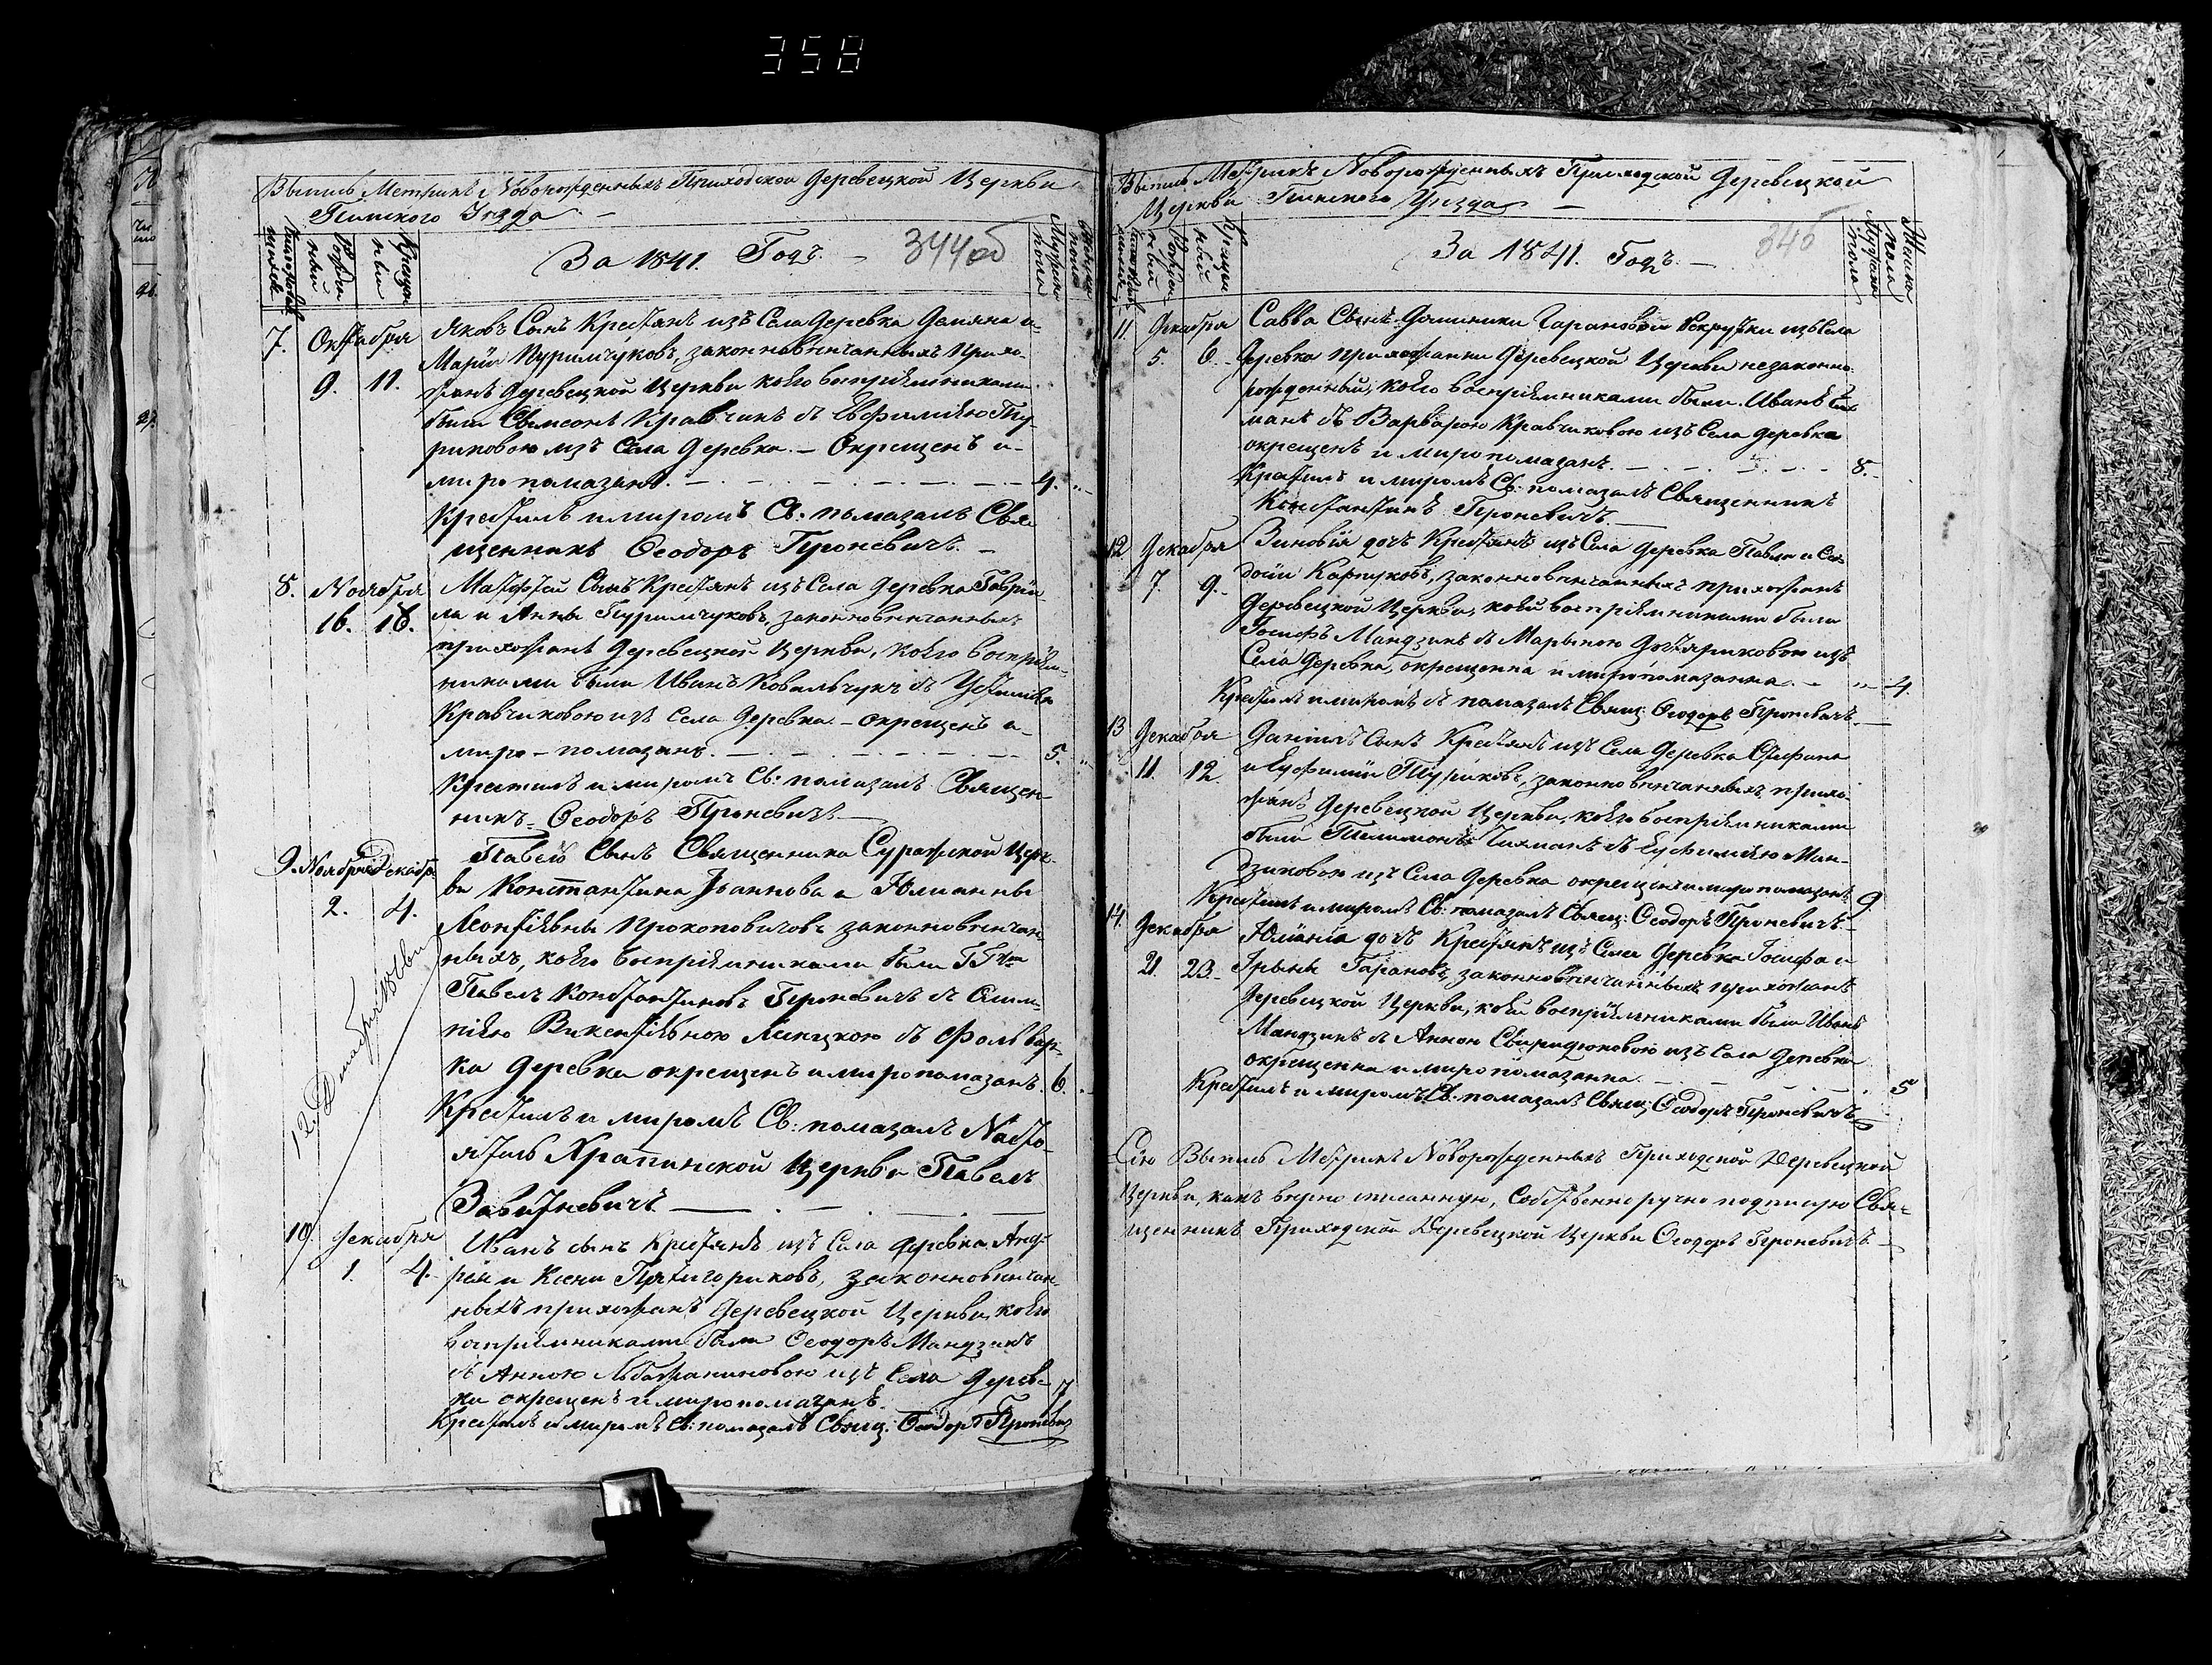 358
Выпись Метрикъ Новорожденныхъ Приходской Деревецкой Церкви
Пинского Уезда –
Рожден
ный
Крещен
ный
За 1841. Годъ. – 344об
Мужеска
пола
Женска
пола
7. Октября
9. 11.
Яковъ Сынъ Крестянъ изъ Села Деревка Демяна и
Маріи Пуримчуковъ, законновѣнчанныхъ прихо-
жанъ Деревецкой Церкви коего воспріемниками
были Сѵмеонъ Кравчикъ съ Евфиміею Ту-
риковою изъ Села Деревка. – Окрещенъ и
миропомазанъ. – 4.
Крестилъ и миромъ Св. помазалъ Свя
щенникъ Ѳеодоръ Проневичъ. –
8. Ноября
16. 18.
Матфей Сынъ Крестянъ изъ Села Деревка Гаврїи-
ла и Анны Пуримчуковъ, законновѣнчанныхъ
прихожанъ Деревецкой Церкви, коего воспріем-
никами были Иванъ Ковальчукъ съ Устиніею
Кравчиковою изъ Села Деревка. – окрещенъ и
миро-помазанъ. – 5.
Крестилъ и миромъ Св: помазалъ Священ-
никъ Ѳеодоръ Проневичъ.
9. Ноября Декабр
2. 4.
Павелъ Сынъ Священника Суражской Церк-
ви Константина Іоаннова и Юліанны
Леонтіевны Прокоповичовъ законновѣнчан-
ныхъ, коего воспріемниками были
Павелъ Константиновъ Проневичъ съ Олим-
піею Викентіевною съ Фольвар-
ка Деревка окрещенъ и миропомазанъ. 6.
Крестилъ и миромъ Св: помазалъ Насто-
ятель Храпинской Церкви Павелъ
Завитневичъ
10. Декабря
1. 4.
Иванъ сынъ Крестянъ изъ Села Деревка Анд-
рея и Ксени Пятигориковъ, законновѣнчан-
ныхъ прихожанъ Деревецкой Церкви, коего
воспріемниками были Ѳеодоръ Мандзикъ
съ Анною изъ Села Дерев-
ка окрещенъ и миропомазанъ. 7
Крестилъ и миромъ Св: помазалъ Свящ: Ѳеодоръ Проневичъ
Выпись Метрикъ Новорожденныхъ Приходской Деревецкой
Церкви Пинского Уезда –
Рожден
ный
Крещен
ный
За 1841. Годъ. –
Мужеска
пола
Женска
пола
11. Декабря
5. 6.
Савва Сынъ Домникіи Гарановой Рекрутки изъ Села
Деревка прихожанки Деревецкой Церкви незаконно-
рожденный, коего воспріемниками были Иванъ
манъ съ Варварою Кравчиковою изъ Села Деревка
окрещенъ и миропомазанъ. – 8.
Крестилъ и миромъ Св: помазалъ Священникъ
Константинъ Проневичъ.
12 Декабря
7. 9.
Зиновія дочъ Крестянъ изъ Села Деревка Павла и
Карпуковъ, законновѣнчанныхъ прихожанъ
Деревецкой Церкви, коей воспріемниками были
Іосифъ Мандзикъ съ Марыною изъ
Села Деревка, окрещенна и миропомазанна. – 4.
Крестилъ и миромъ Св помазалъ Свящ: Ѳеодоръ Проневичъ
13 Декабря
11. 12
Даніилъ Сынъ Крестянъ изъ Села Деревка Стефана
и Евфиміи Туриковъ, законновѣнчанныхъ прихо-
жанъ Деревецкой Церкви, коего воспріемниками
были съ Евфиміею Ман-
дзиковою изъ Села Деревка окрещенъ и миропомазанъ 9
Крестилъ и миромъ Св: помазалъ Свящ: Ѳеодоръ Проневичъ.
14. Декабря
21 23.
Юліанія дочъ Крестянъ изъ Села Деревка Іосифа и
Ірыны Гарановъ, законновѣнчанныхъ прихожанъ
Деревецкой Церкви, коей воспріемниками были Иванъ
Мандзикъ съ Анною Свиридюковою изъ Села Деревка
окрещенна и миропомазанна. 5
Крестилъ и миромъ Св. помазалъ Свящ: Ѳеодоръ Проневичъ
Сію Выпись Метрикъ Новорожденныхъ Приходской Деревецкой
Церкви, какъ вѣрно списанную, Собственноручно подписую Свя-
щенникъ Приходской Деревецкой Церкви Ѳеодоръ Проневичъ. –